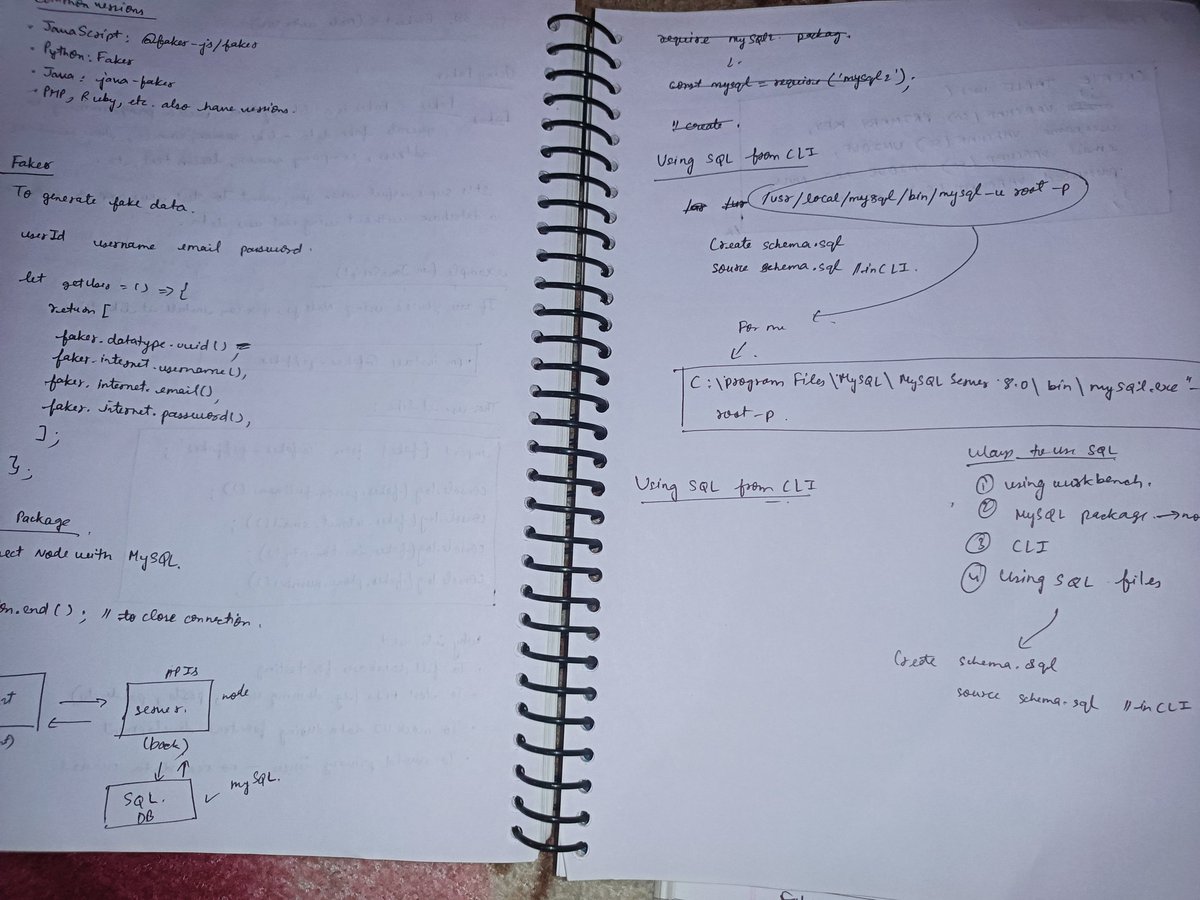 Common versions
• JavaScript: @faker-js/faker
• Python: Faker
• Java: java-faker
• PHP, Ruby, etc. also have versions.
Faker
To generate fake data.
userId username email password.
let getUser = () => {
return [
faker.datatype.uuid(),
faker.internet.username(),
faker.internet.email(),
faker.internet.password(),
];
};
Package
nect Node with MySQL.
on.end(); // to close connection.
APIs
node
server.
(back)
SQL.
DB
mySQL.
require mySQL packag.
const mysql = require('mysql2');
// create.
Using SQL from CLI
/usr/local/mysql/bin/mysql -u root -p
Create schema.sql
source schema.sql // in CLI.
For me
C:\program Files\MySQL\MySQL Server 8.0\bin\mysql.exe" -
root -p.
Using SQL from CLI
Ways to use SQL
① using workbench.
② MySQL package → no
③ CLI
④ Using SQL files
Create schema.sql
source schema.sql // in CLI